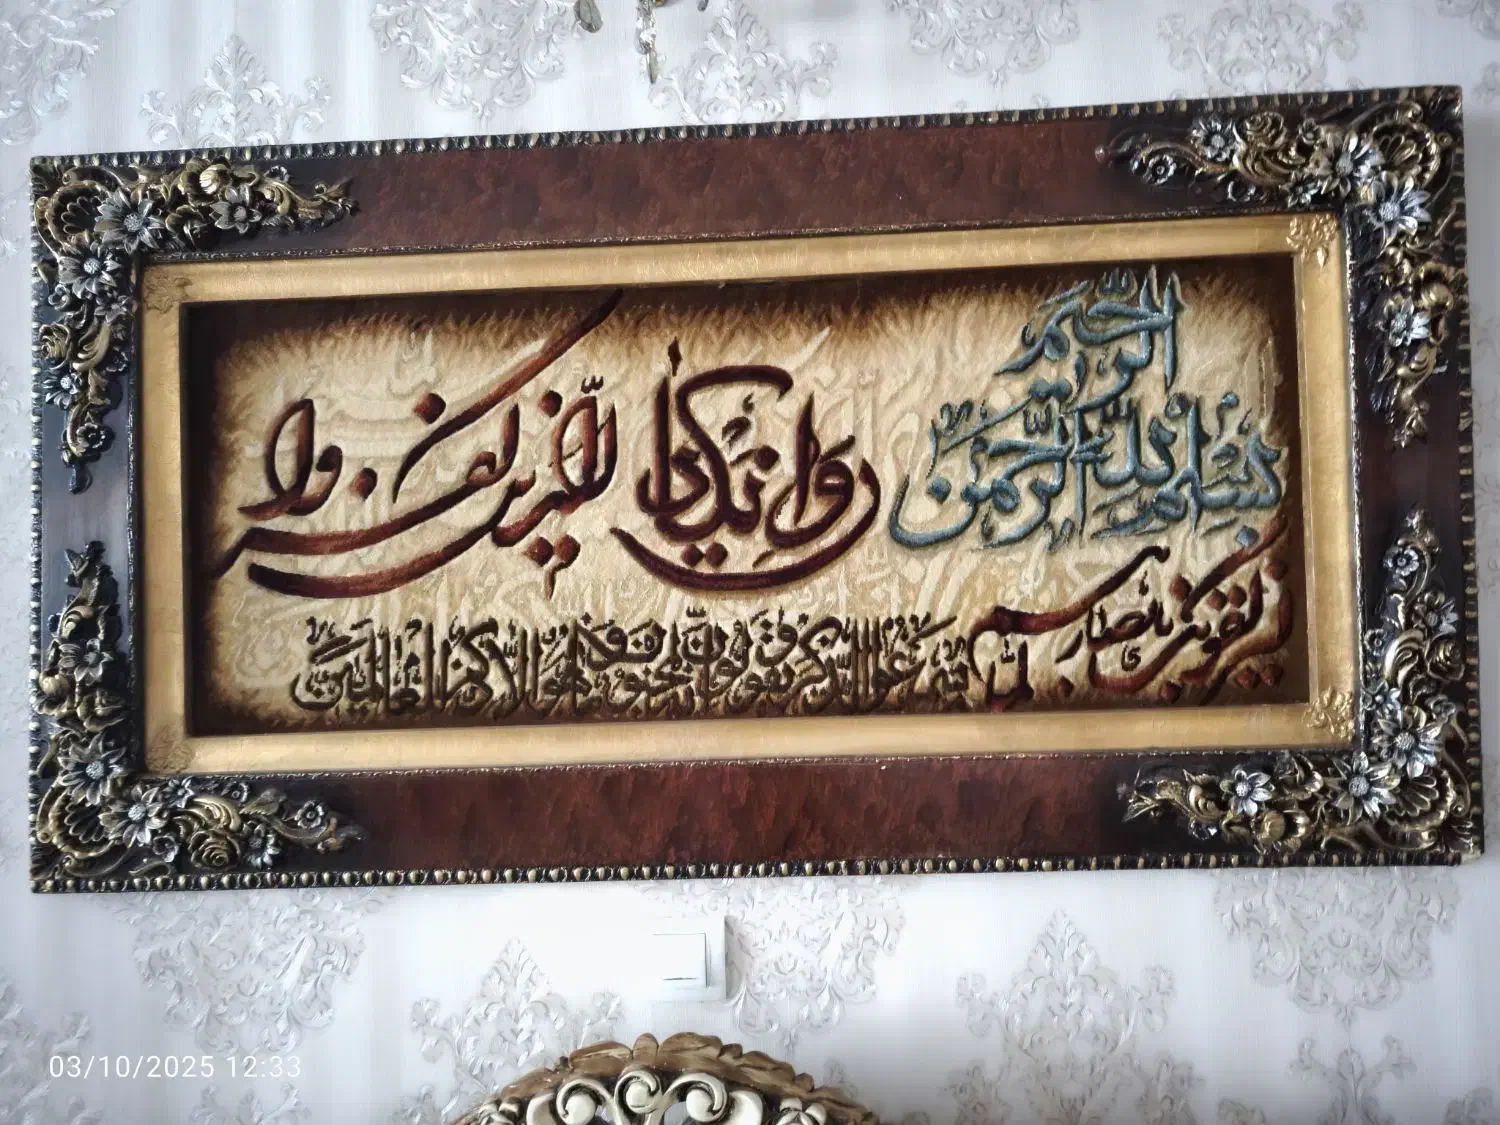 بسم الله الرحمن الرحیم
وان یکاد الذین کفروا
لیزلقونک بابصارهم لما
سمعوا الذکر و یقولون انه لمجنون و ما هو الا ذکر للعالمین
03/10/2025 12:33